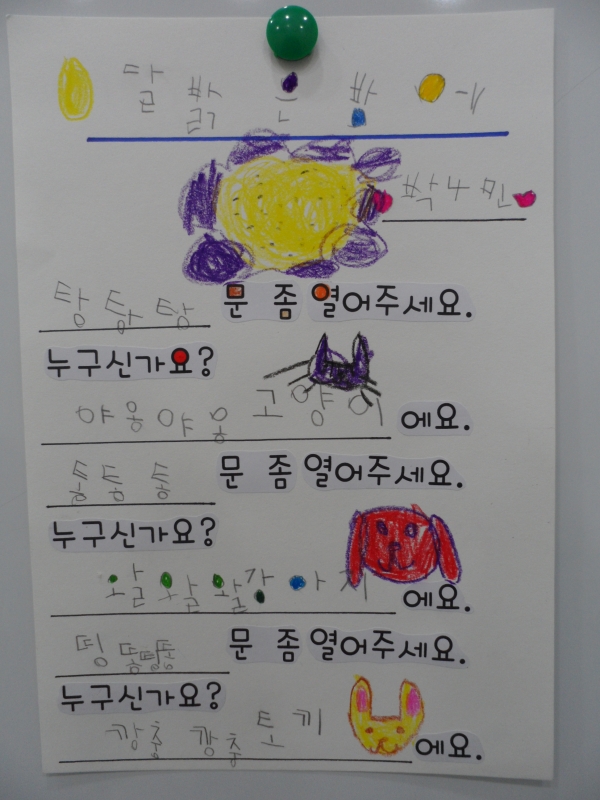 달 밝 은 밤 에
박 수 민
탕 탕 탕 문 좀 열어주세요.
누구신가요?
야옹야옹 고양이 에요.
문 좀 열어주세요.
누구신가요?
왈 왈 왈 강아지 에요.
띵 똥띵똥 문 좀 열어주세요.
누구신가요?
깡충 깡충 토끼 에요.